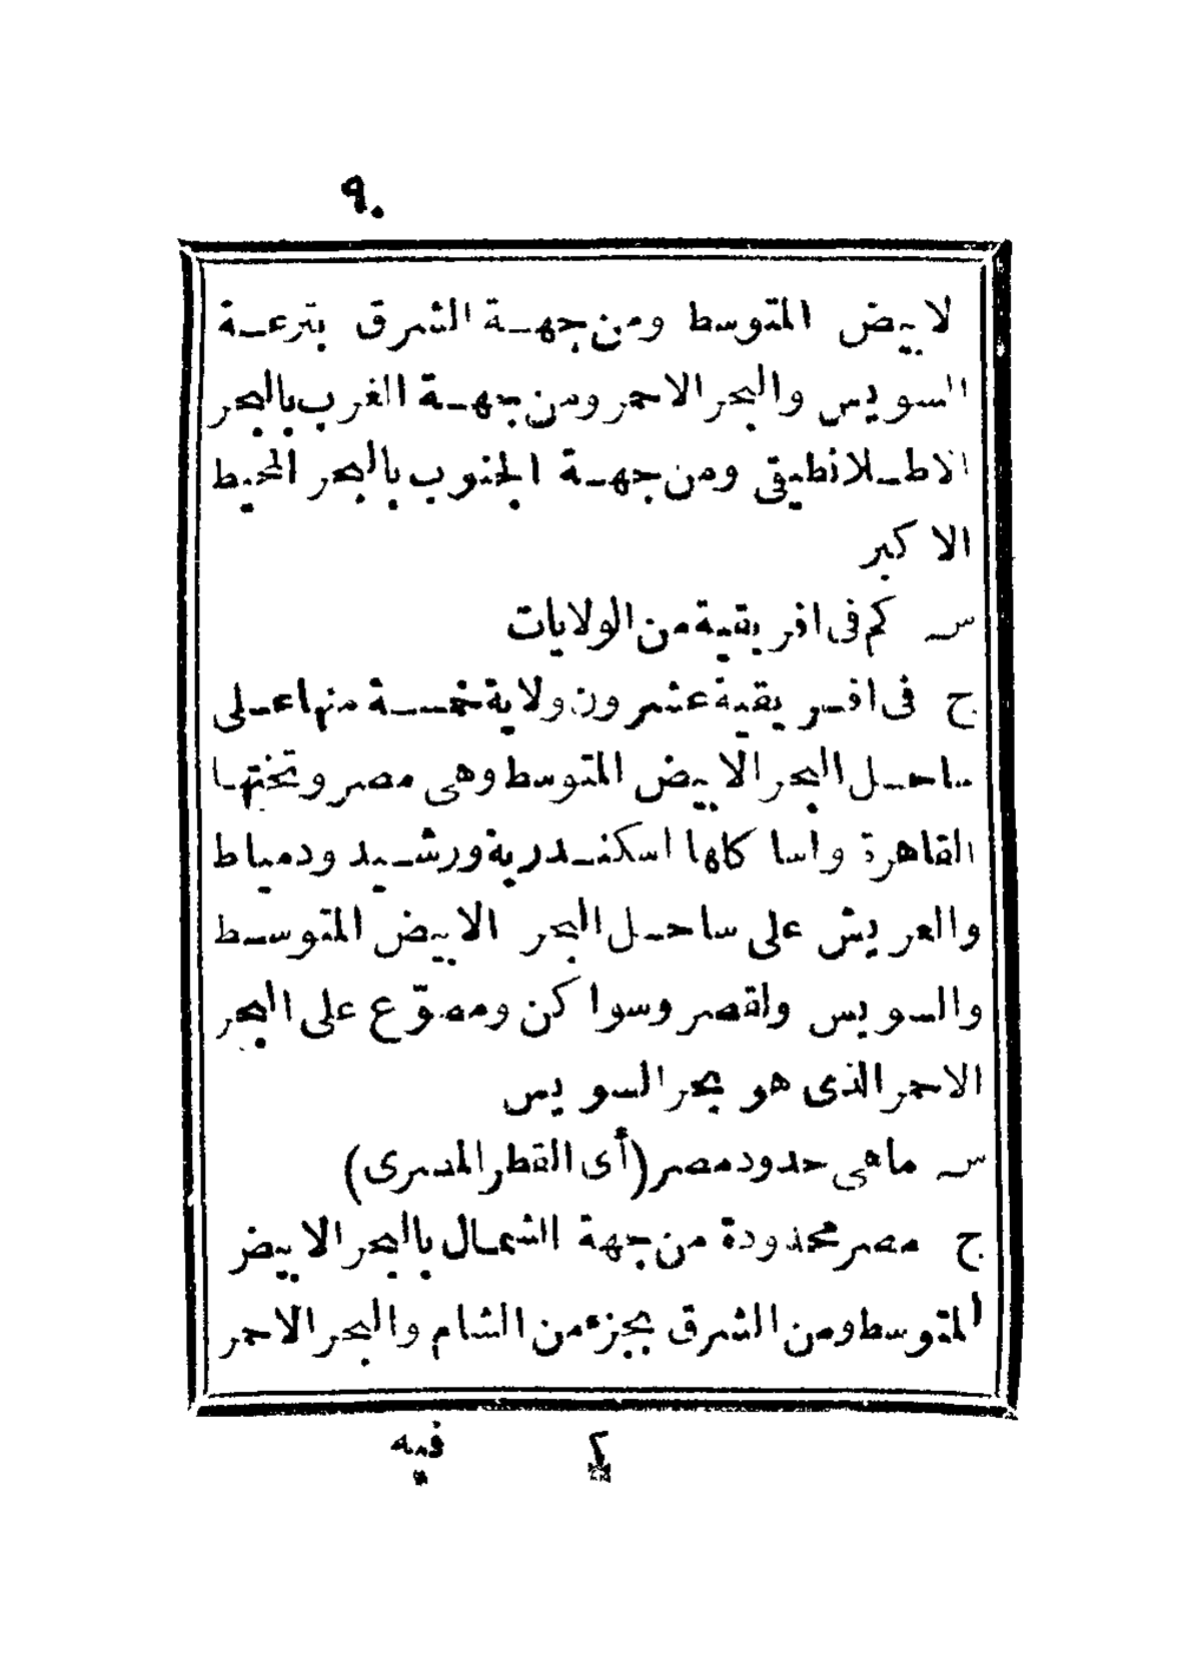 ٩٠
لابيض المتوسط ومن جهة الشرق بترعة
السويس والبحر الاحمر ومن جهة الغرب بالبحر
الاطلانطيقى ومن جهة الجنوب بالبحر المحيط
الاكبر
س كم فى افريقية من الولايات
ج فى افريقية عشرون ولاية خمسة منها على
ساحل البحر الابيض المتوسط وهى مصر وتختها
القاهرة واساكلها اسكندرية ورشيد ودمياط
والعريش على ساحل البحر الابيض المتوسط
والسويس ولقصر وسواكن ومصوّع على البحر
الاحمر الذى هو بحر السويس
س ماهى حدود مصر (أى القطر المصرى)
ج مصر محدودة من جهة الشمال بالبحر الابيض
المتوسط ومن الشرق بجزء من الشام والبحر الاحمر
٢ فيه